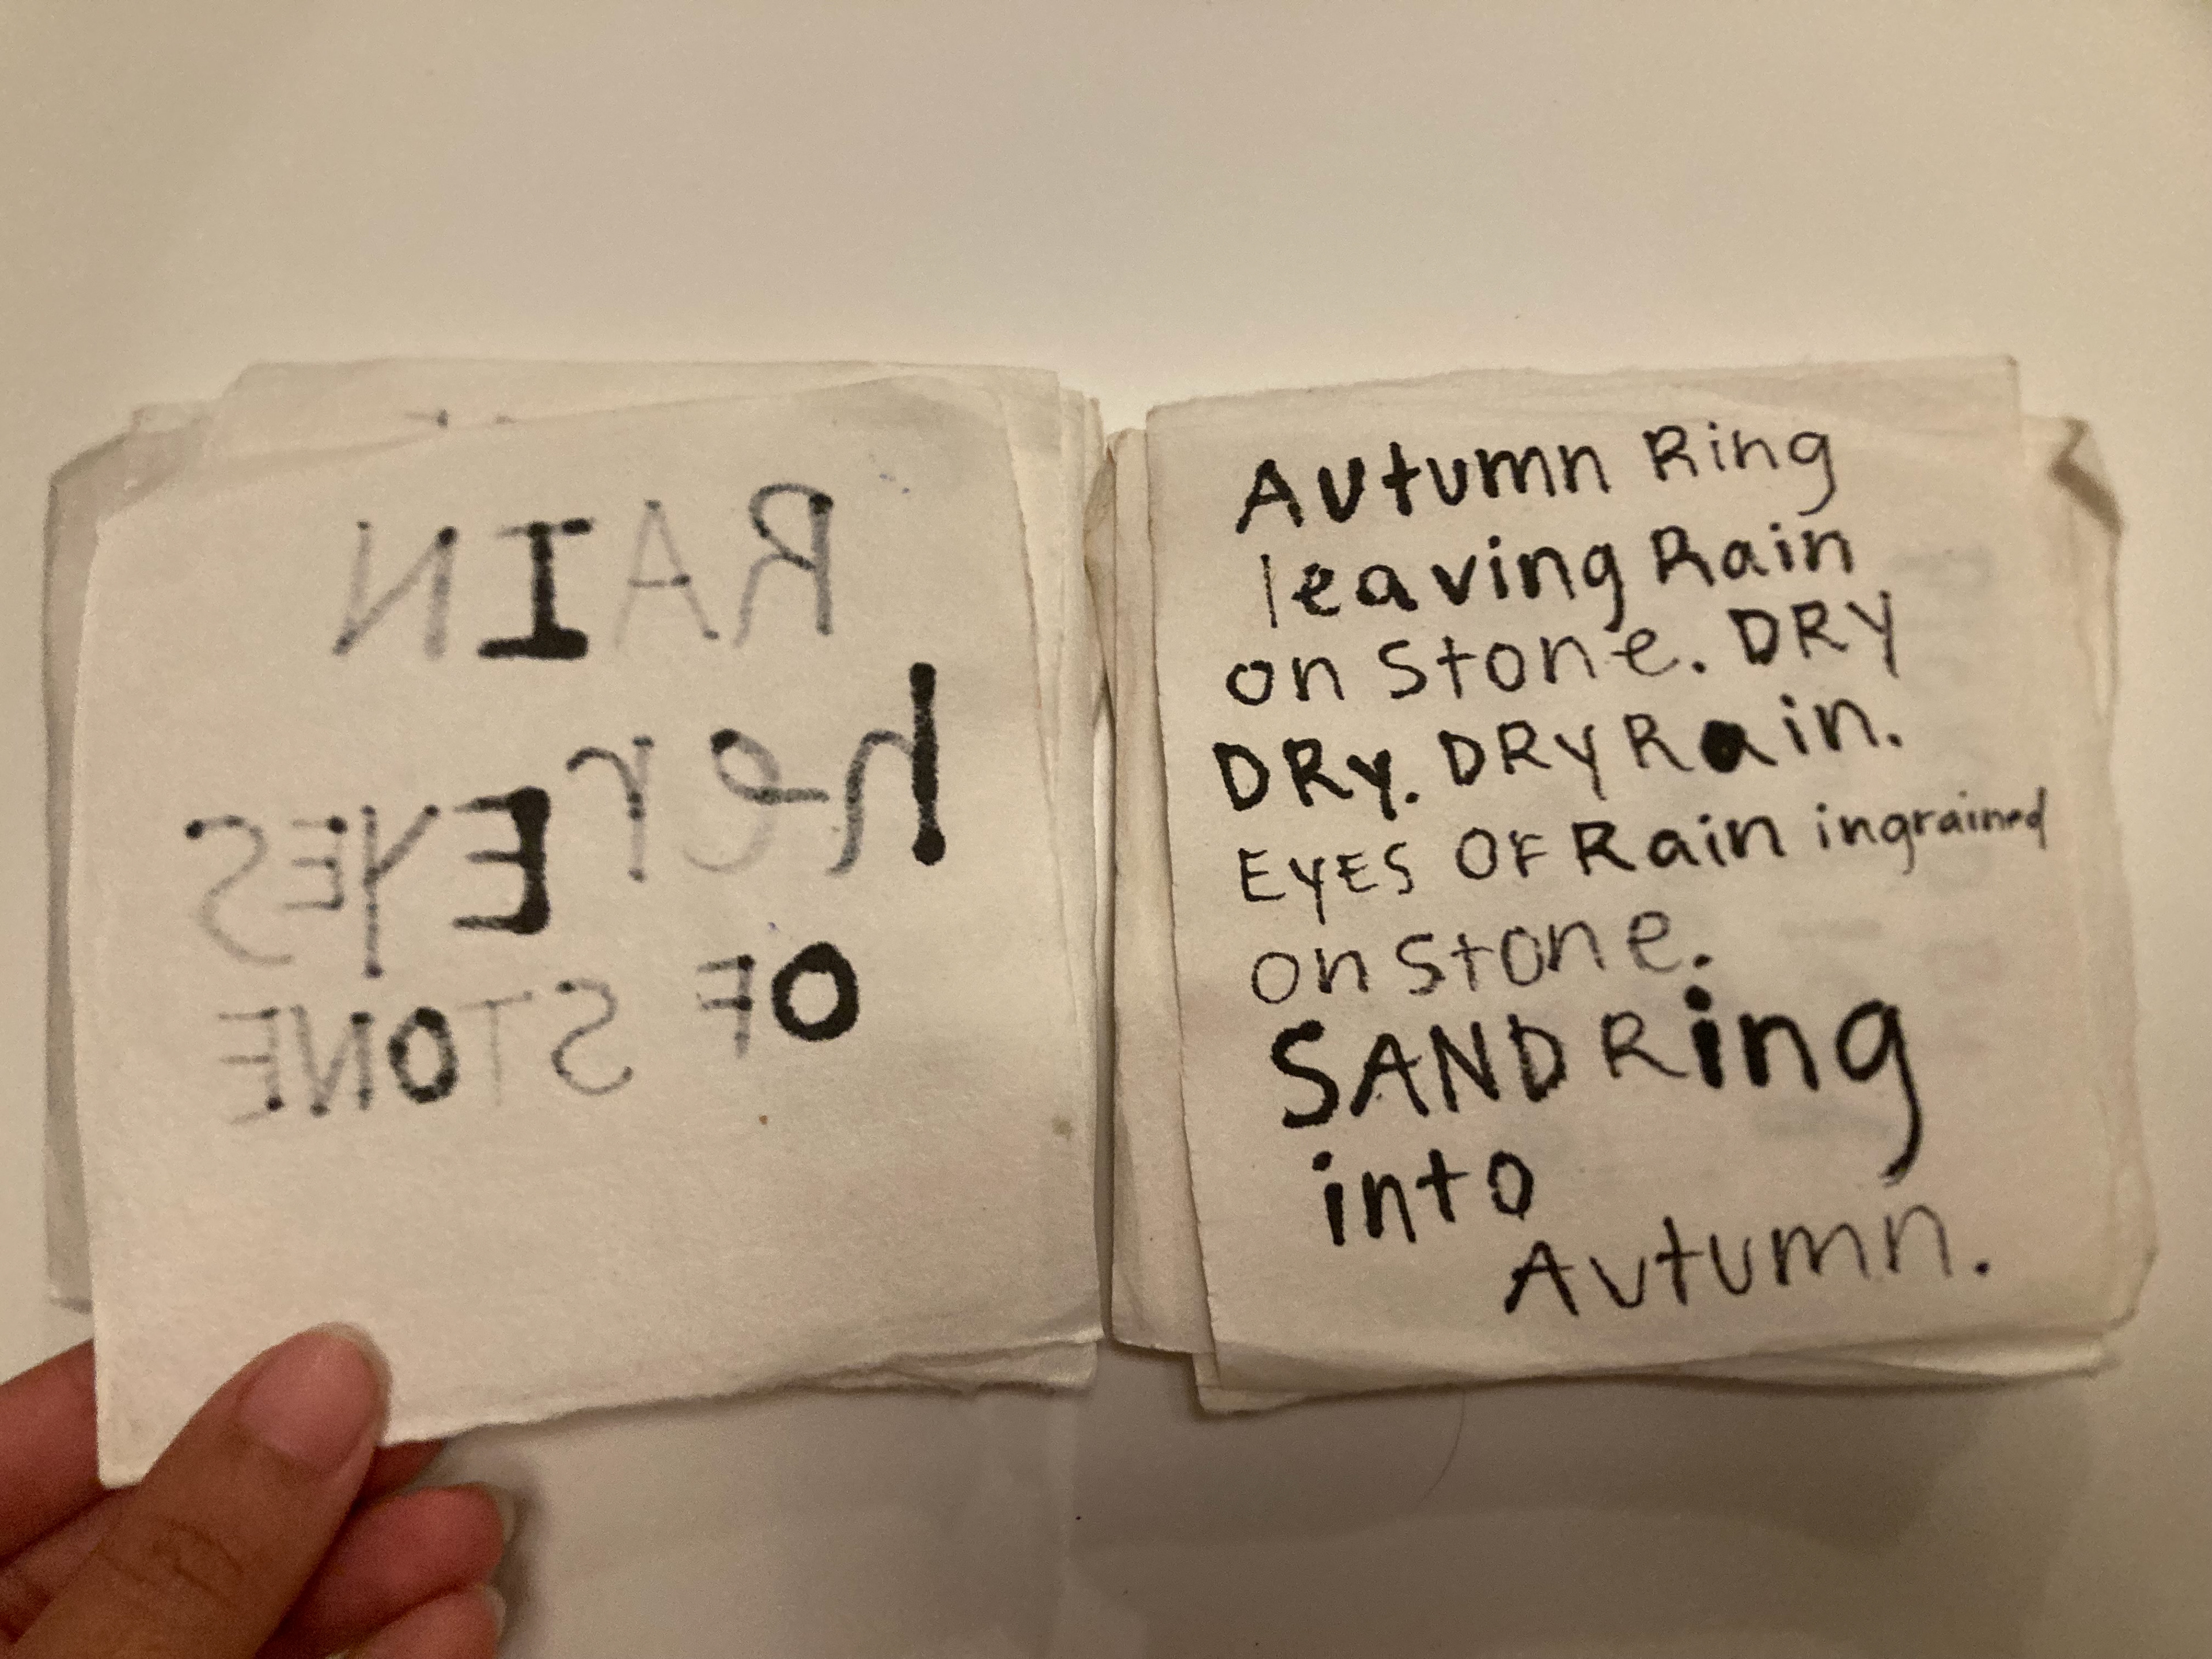 RAIN
her EYES
OF STONE
Autumn Ring
leaving Rain
on Stone. DRY
DRY. DRY Rain.
EYES OF Rain ingrained
on Stone.
SAND Ring
into
Autumn.